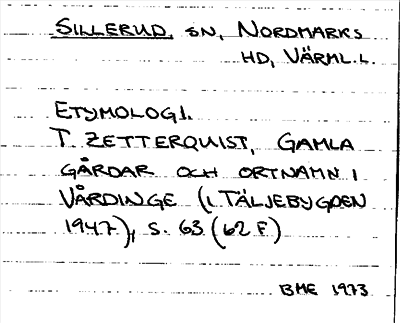 SILLERUD, SN, NORDMARKS
HD, VÄRML.L.
ETYMOLOGI.
T. ZETTERQUIST, GAMLA
GÅRDAR OCH ORTNAMN I
VÅRDINGE (I TÄLJEBYGDEN
1947), S. 63 (62 F.)
BME 1973